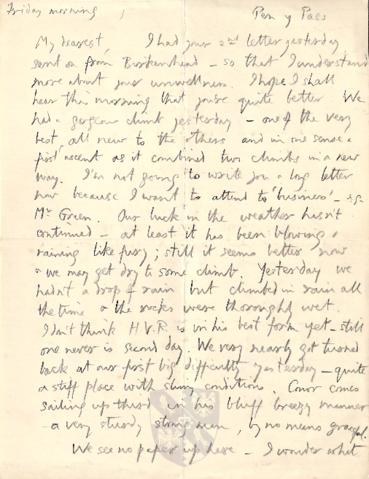 Friday morning, Pen y Pass
My dearest, I had your 2nd letter yesterday
sent on from Birkenhead – so that I understand
more about your unwellness. I hope I shall
hear this morning that you're quite better. We
had a gorgeous climb yesterday – one of the very
best, all new to the others and in one sense a
first ascent as it combined two climbs in a new
way. I'm not going to write you a long letter
now because I want to attend to 'business' – e.g.
Mr Green. Our luck in the weather hasn't
continued – at least it has been blowing &
raining like fury; still it seems better now
& we may get dry to some climb. Yesterday we
hadn't a drop of rain but climbed in rain all
the time & the rocks were thoroughly wet.
I don't think H.V.R. is in his best form yet – still
one never is second day. We very nearly got turned
back at our first big difficulty yesterday – quite
a stiff place with slimy conditions. Conor comes
sailing up third in his bluff breezy manner
– a very sturdy strong man, by no means graceful.
We see no paper up here – I wonder what